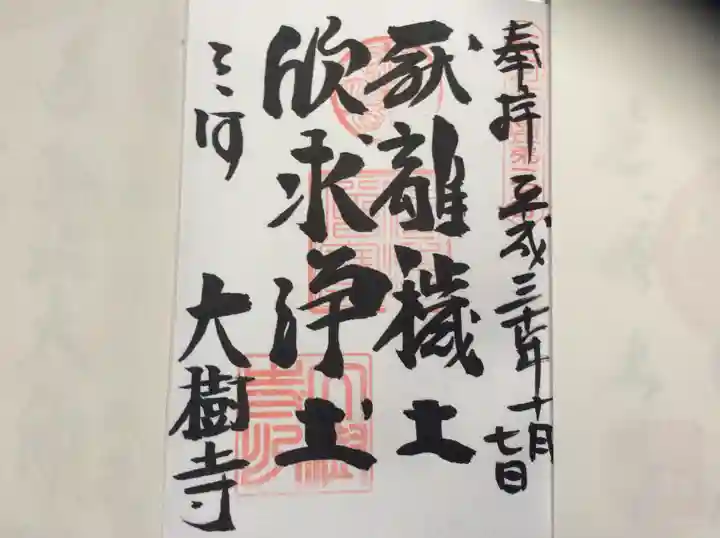 奉拝 平成三十年十月七日
厭離穢土
欣求浄土
三河 大樹寺